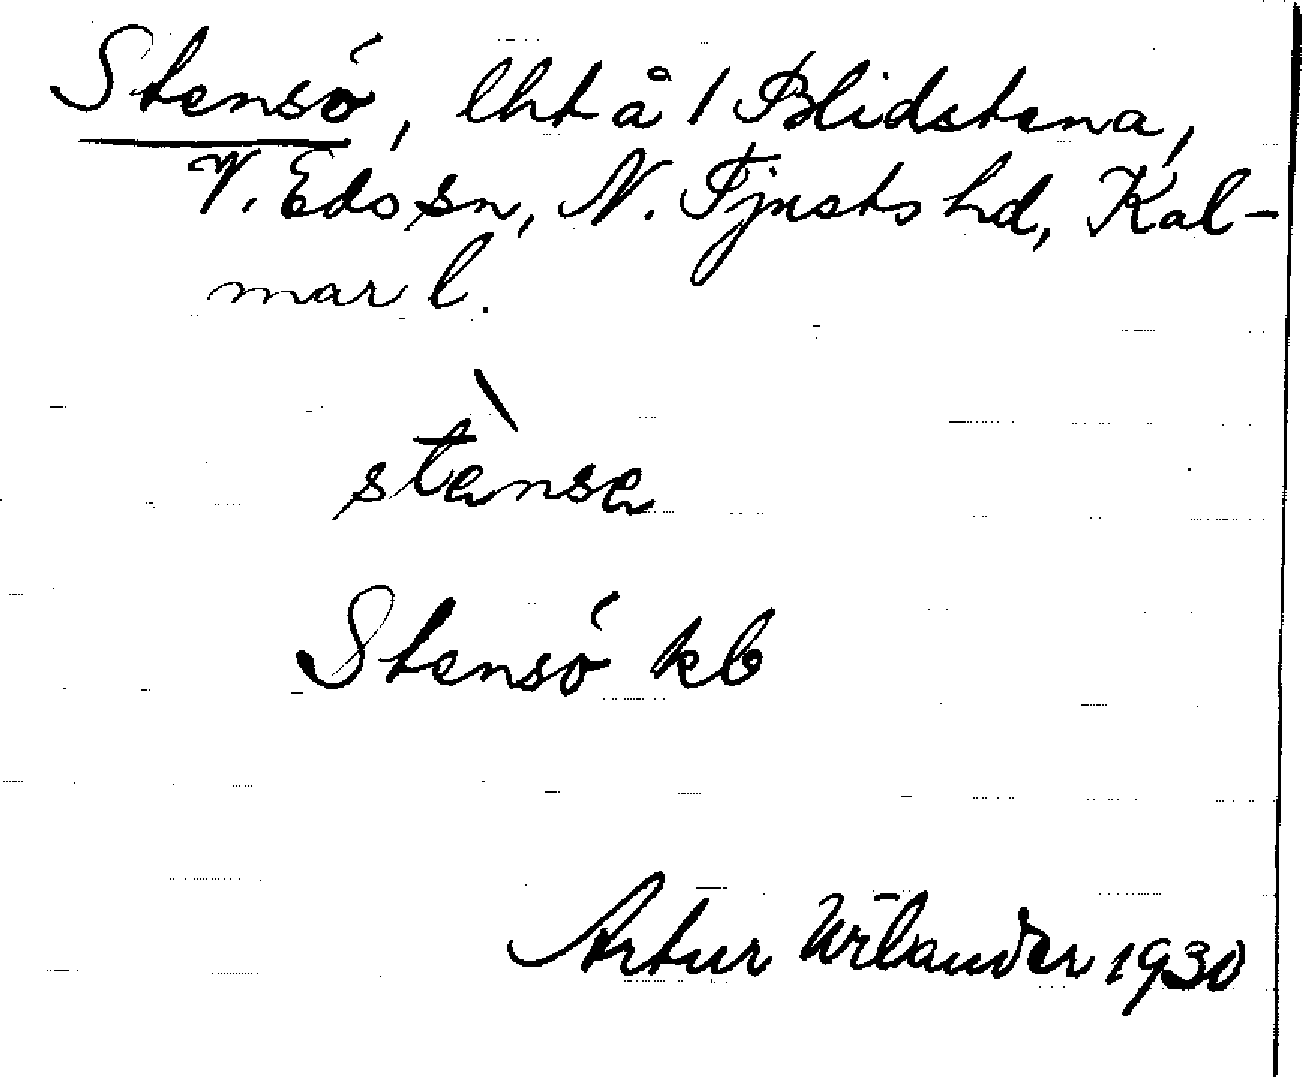 Stensö, lht å 1 Blidstena,
V. Eds sn, N. Tjusts hd, Kal-
mar l.
stènse
Stensö kb
Artur Wilander 1930